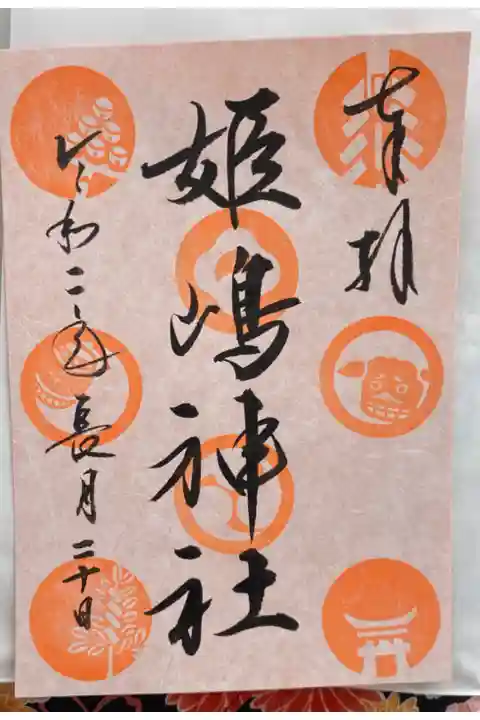 奉拝
姫嶋神社
令和二年長月二十日